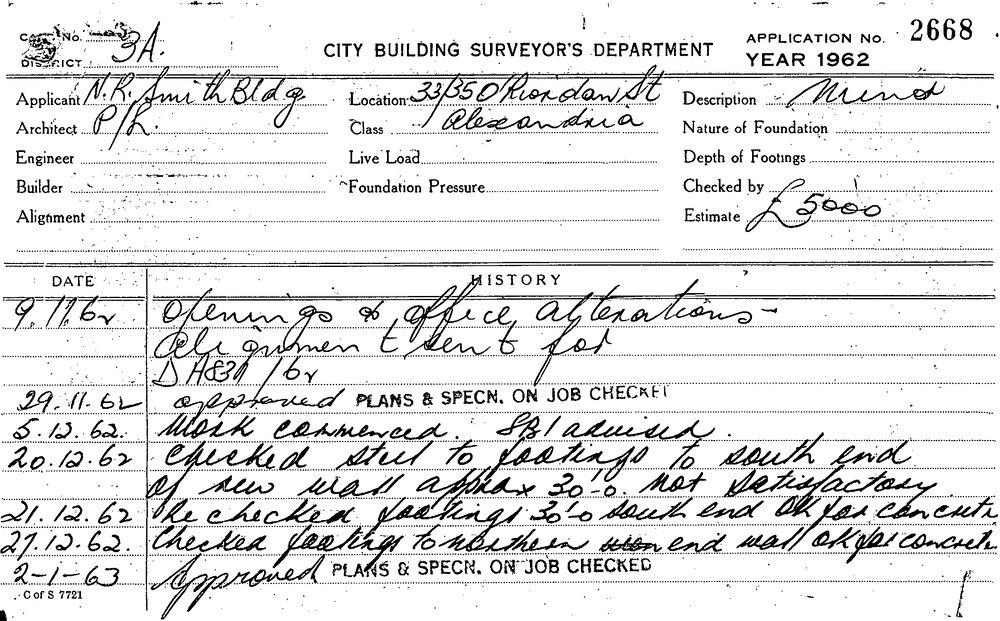 No. 3A.
DISTRICT
CITY BUILDING SURVEYOR'S DEPARTMENT
APPLICATION No. 2668
YEAR 1962
Applicant N. R. Smith Bldg
Location 33/35 O'Riordan St
Description Mind
Architect P/L.
Class Alexandria
Nature of Foundation
Engineer
Live Load
Depth of Footings
Builder
Foundation Pressure
Checked by
Alignment
Estimate £5000
DATE
HISTORY
9.11.62 Openings & office alterations -
alignment sent for
DA 62
29.11.62 approved PLANS & SPECN. ON JOB CHECKED
5.12.62. Work commenced. SBI advised.
20.12.62 Checked steel to footings to south end
of new wall approx 30'-0. Not satisfactory
21.12.62 Re checked footings 30'-0 south end OK for concrete
27.12.62. Checked footings to northern end wall OK for concrete
2-1-63 Approved PLANS & SPECN. ON JOB CHECKED
C of S 7721